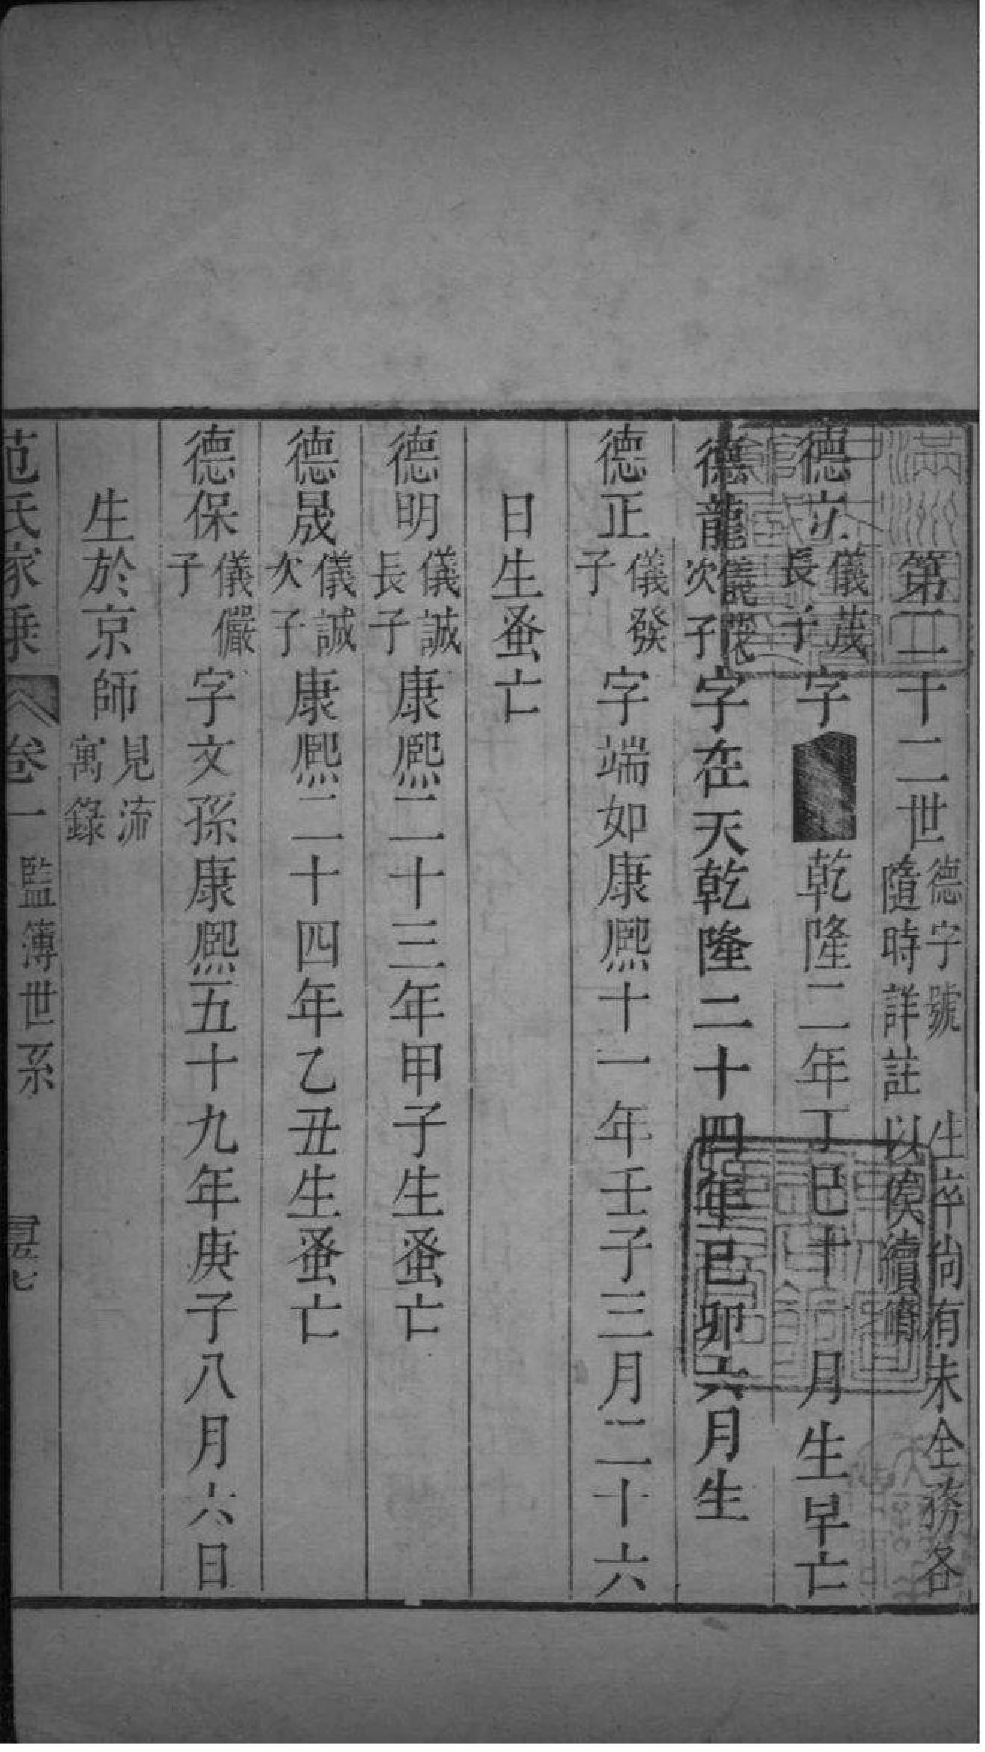 第二十二世德字號生卒尚有未全務各隨時詳註以俟續脩
德立儀茂長子字乾隆二年丁巳十一月生早亡
德龍儀茂次子字在天乾隆二十四年已卯六月生
德正儀發子字端如康熙十一年壬子三月二十六
日生蚤亡
德明儀誠長子康熙二十三年甲子生蚤亡
德晟儀誠次子康熙二十四年乙丑生蚤亡
德保儀儼子字文孫康熙五十九年庚子八月六日
生於京師見流寓錄
范氏家乘 卷一 監簿世系